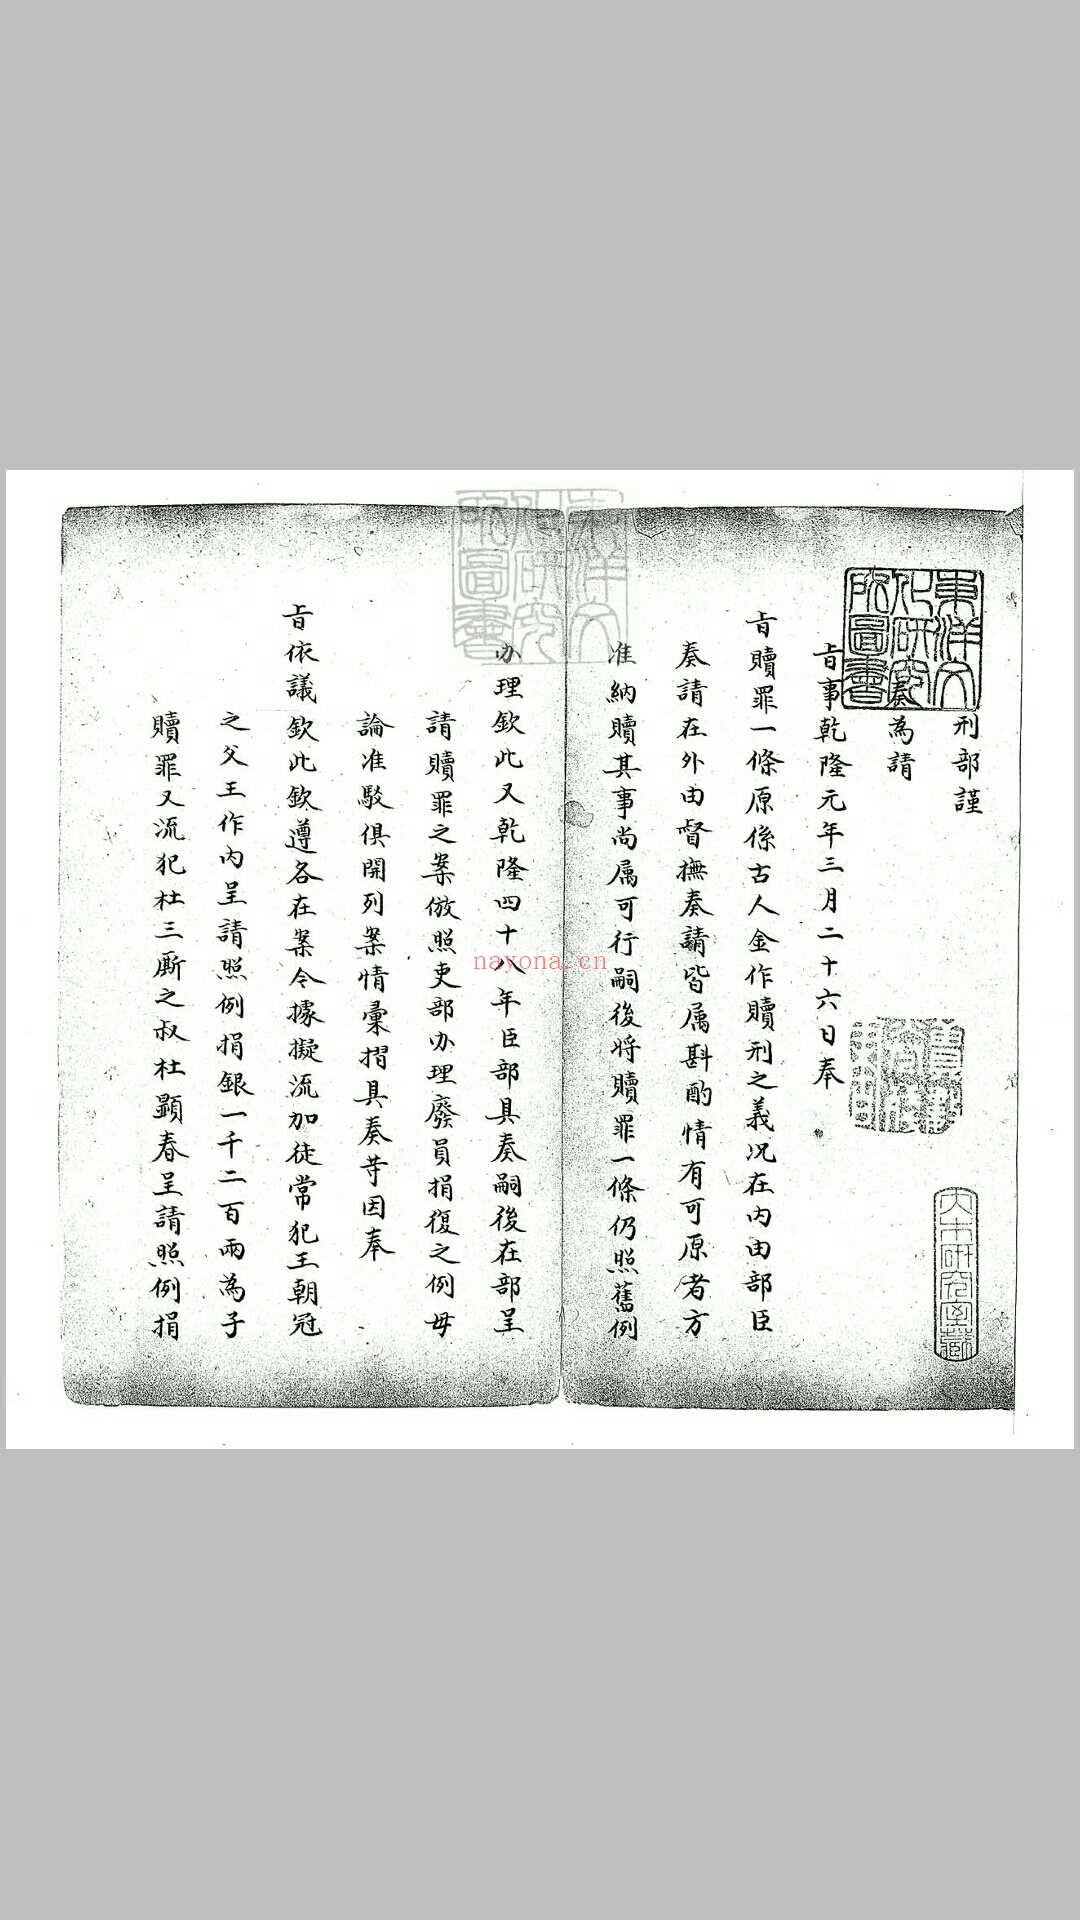 刑部謹
奏為請
旨事乾隆元年三月二十六日奉
旨贖罪一條原係古人金作贖刑之義況在內由部臣
奏請在外由督撫奏請皆属斟酌情有可原者方
准納贖其事尚属可行嗣後将贖罪一條仍照舊例
办理欽此又乾隆四十八年臣部具奏嗣後在部呈
請贖罪之案倣照吏部办理廢員捐復之例毋
論准駁俱開列案情彙摺具奏等因奉
旨依議欽此欽遵各在案今據擬流加徒常犯王朝冠
之父王作內呈請照例捐銀一千二百兩為子
贖罪又流犯杜三厮之叔杜顕春呈請照例捐
東洋文化研究所圖書
大木研究室藏
nayona.cn